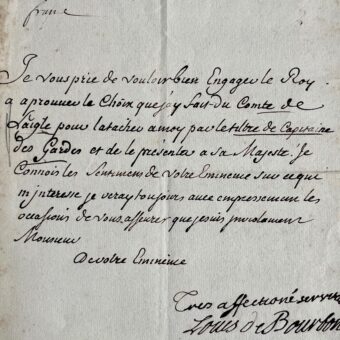 france
Je vous prie de vouloir bien Engager le Roy
a aprouver le Choix que j'ay fait du Comte de
L'aigle pour l'atacher a moy par le tiltre de Capitaine
des Gardes et de le presenter a sa Majesté. Je
Connois les Sentimens de Votre Eminence sur ce qui
m'interesse je veray toujours avec empressement les
occasions de vous assurer que je suis
Monsieur
De votre Eminence
Tres affectioné servite
Louis de Bourbon